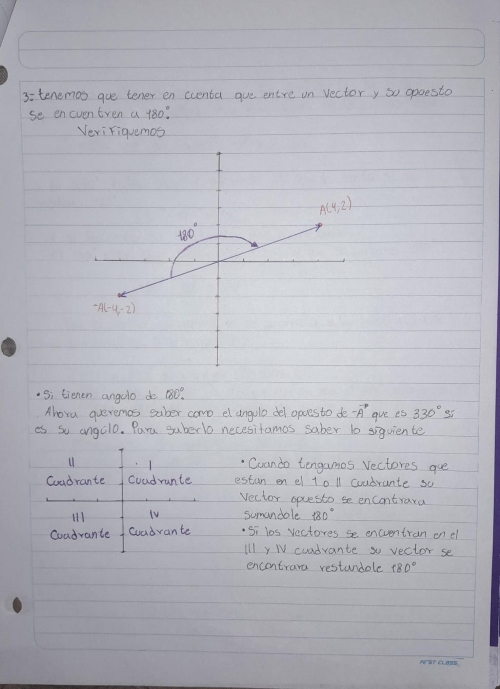 3= tenemos que tener en cuenta que entre un vector y su opuesto
se encuentren a 180°.
Verifiquemos
A(4,2)
180°
-A(-4,-2)
• Si tienen angulo de 180°.
Ahora queremos saber como el angulo del opuesto de -A que es 330° si
es su angulo. Para saberlo necesitamos saber lo siguiente
II
Cuadrante
I
Cuadrante
III
Cuadrante
IV
Cuadrante
• Cuando tengamos vectores que
estan en el I o II cuadrante su
vector opuesto se encontrara
sumandole 180°
• Si los vectores se encuentran en el
III y IV cuadrante su vector se
encontrara restandole 180°
FIRST CLASS